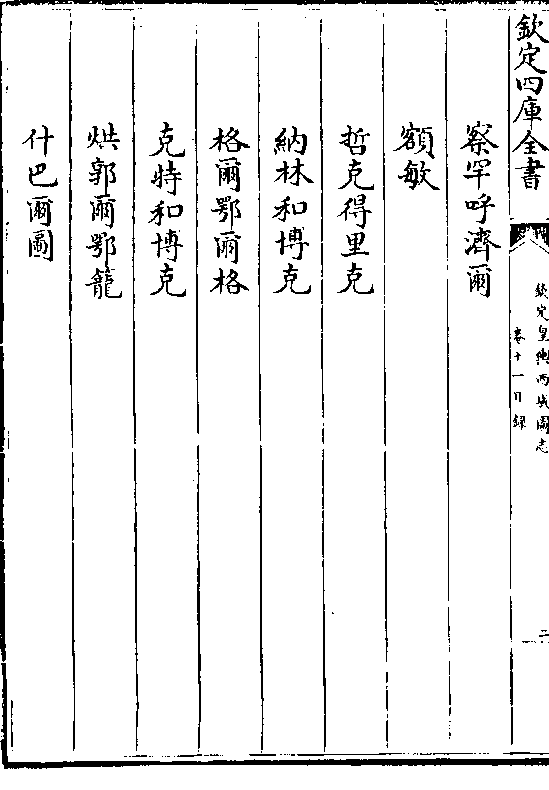 欽定四庫全書
欽定皇輿西域圖志
卷十一目録
二
察罕呼濟爾
額敏
哲克得里克
納林和博克
格爾鄂爾格
克特和博克
烘郭爾鄂籠
什巴爾圖